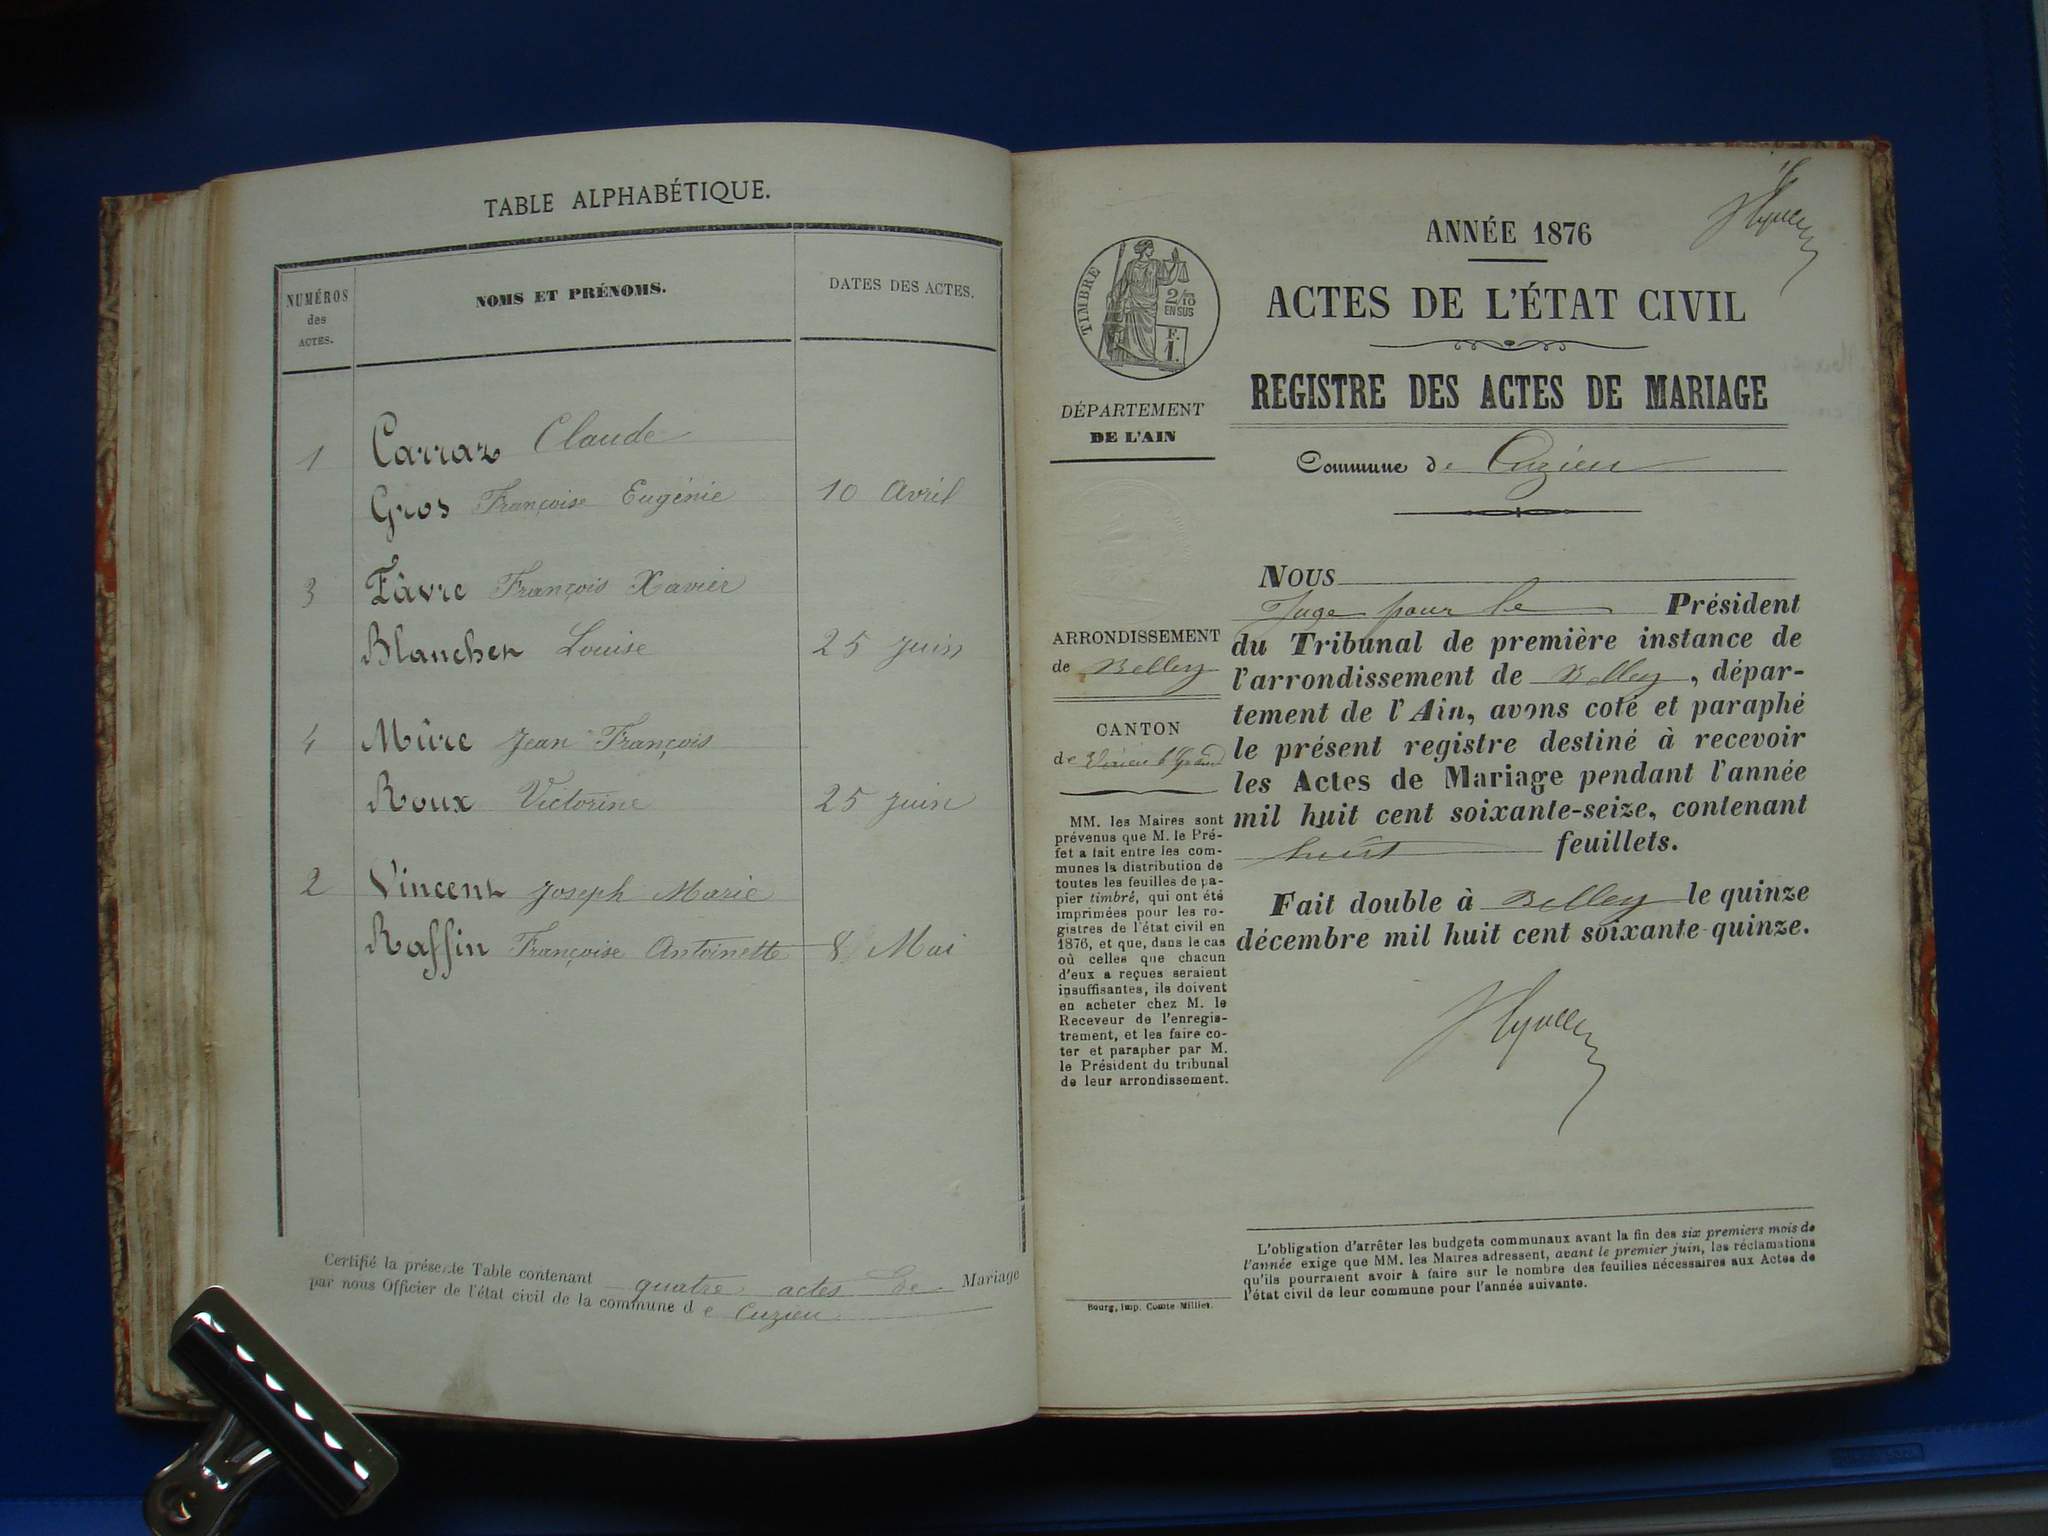 TABLE ALPHABÉTIQUE.
NUMÉROS
des
ACTES.
NOMS ET PRÉNOMS.
DATES DES ACTES.
1 Carraz Claude
Gros Françoise Eugénie 10 Avril
3 Fâvre François Xavier
Blancher Louise 25 Juin
4 Mûre Jean François
Roux Victorine 25 Juin
2 Vincent Joseph Marie
Raffin Françoise Antoinette 8 Mai
Certifié la présente Table contenant quatre actes de Mariage
par nous Officier de l'état civil de la commune de Cuzieu
TIMBRE
2/10
EN SUS
F.
1.
DÉPARTEMENT
DE L'AIN
ARRONDISSEMENT
de Belley
CANTON
de Virieu le Grand
MM. les Maires sont
prévenus que M. le Pré-
fet a fait entre les com-
munes la distribution de
toutes les feuilles de pa-
pier timbré, qui ont été
imprimées pour les re-
gistres de l'état civil en
1876, et que, dans le cas
où celles que chacun
d'eux a reçues seraient
insuffisantes, ils doivent
en acheter chez M. le
Receveur de l'enregis-
trement, et les faire co-
ter et parapher par M.
le Président du tribunal
de leur arrondissement.
Bourg, imp. Comte-Milliet.
ANNÉE 1876
ACTES DE L'ÉTAT CIVIL
REGISTRE DES ACTES DE MARIAGE
Commune de Cuzieu
NOUS
Juge pour le Président
du Tribunal de première instance de
l'arrondissement de Belley, dépar-
tement de l'Ain, avons coté et paraphé
le présent registre destiné à recevoir
les Actes de Mariage pendant l'année
mil huit cent soixante-seize, contenant
huit feuillets.
Fait double à Belley le quinze
décembre mil huit cent soixante-quinze.
L'obligation d'arrêter les budgets communaux avant la fin des six premiers mois de
l'année exige que MM. les Maires adressent, avant le premier juin, les réclamations
qu'ils pourraient avoir à faire sur le nombre des feuilles nécessaires aux Actes de
l'état civil de leur commune pour l'année suivante.